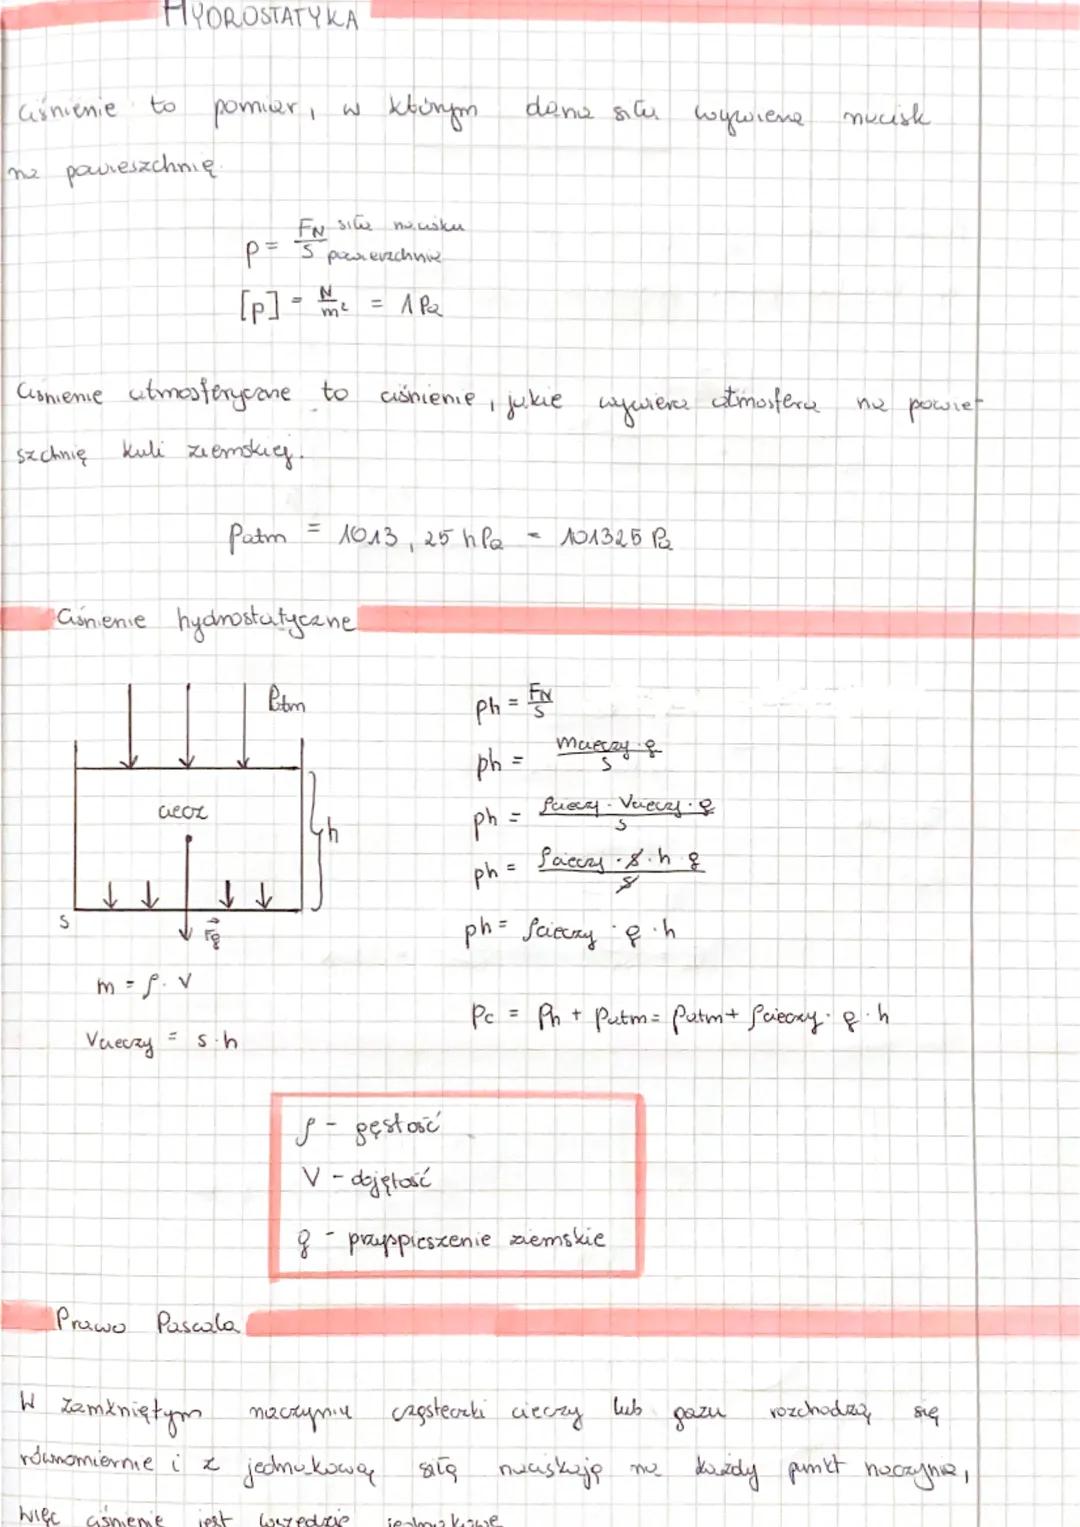 HYDROSTATYKA
Ciśnienie to pomiar, w którym dana siła wywiera nacisk
na powieszchnię.
p = FN siła nacisku
S powierzchnia
[p] = N/m² = 1 Pa
Ciśnienie atmosferyczne to ciśnienie, jakie wywiera atmosfera na powier
szchnię kuli ziemskiej.
Patm = 1013,25 hPa = 101325 Pa
Ciśnienie hydrostatyczne
Patm
ciecz
h
S
Fg
m = ρ · V
Vcieczy = S · h
ph = FN/S
ph = mcieczy · g / S
ph = ρcieczy · Vcieczy · g / S
ph = ρcieczy · S · h · g / S
ph = ρcieczy · g · h
Pc = Ph + Patm = Patm + ρcieczy · g · h
ρ - gęstość
V - dojętość
g - przyppieszenie ziemskie
Prawo Pascala
W zamkniętym naczyniu cząsteczki cieczy lub gazu rozchodzą się
równomiernie i z jednakową siłą naciskają na każdy punkt naczynia,
więc ciśnienie jest wszędzie jednakowe